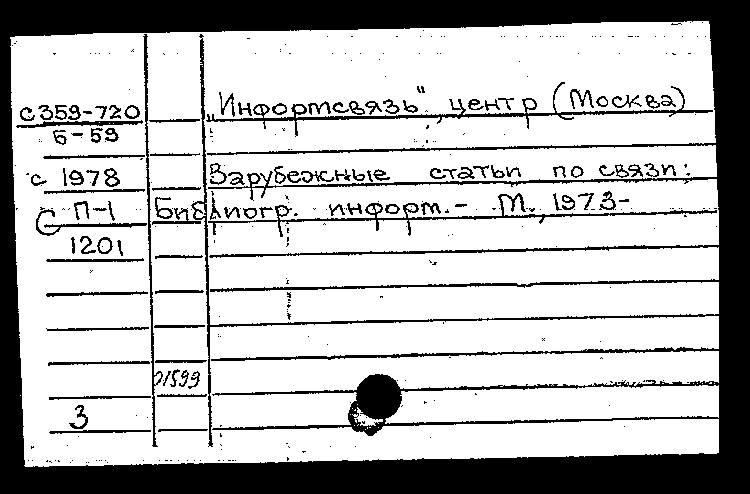 с359-720 „Информсвязь", центр (Москва)
Б-59
с 1978 Зарубежные статьи по связи:
С П-1 Библиогр. информ.- М., 1973-
1201
01599
3